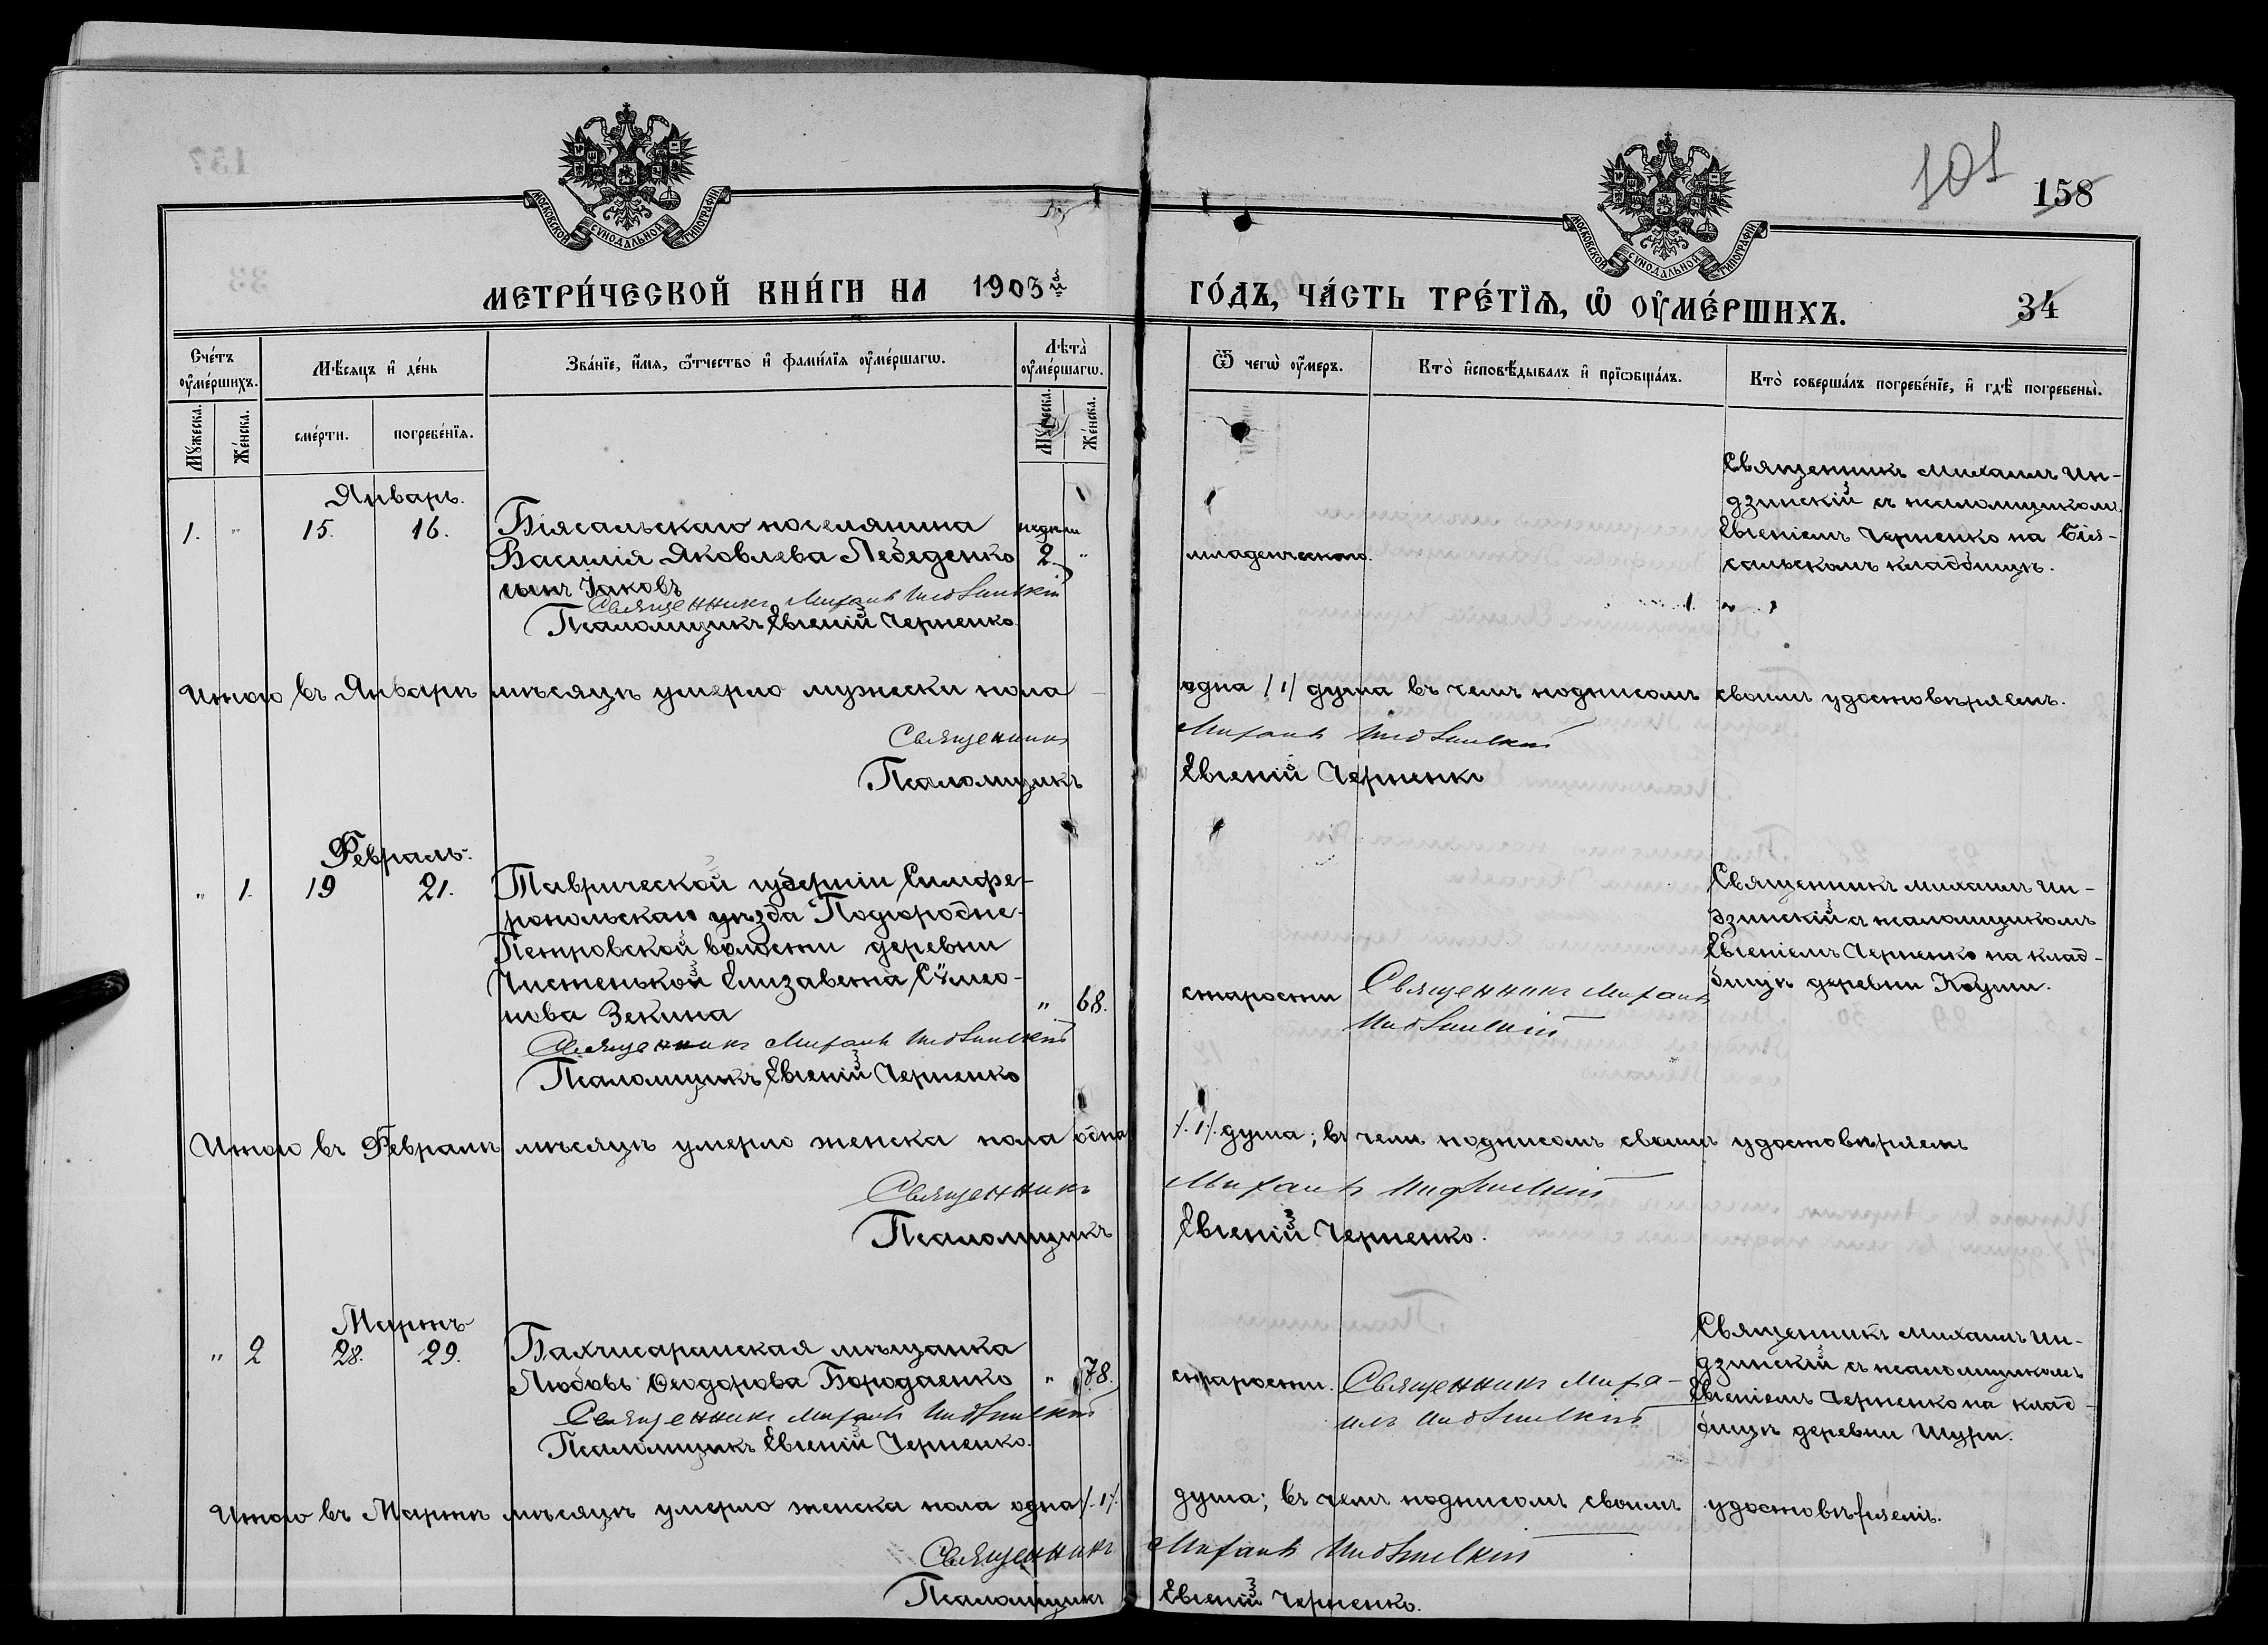 101
158
МОСКОВСКОЙ СУНОДАЛЬНОЙ ТИПОГРАФІИ
МОСКОВСКОЙ СУНОДАЛЬНОЙ ТИПОГРАФІИ
МЕТРИ́ЧЕСКОЙ КНИ́ГИ НА 1903й ГО́ДЪ, ЧА́СТЬ ТРЕ́ТЇѦ, Ѡ҆ ОУ҆МЕ́РШИХЪ.
34
Сче́тъ оу҆ме́ршихъ.
Мѣ́сяцъ и҆ де́нь
Зва́нїе, и҆́мя, ѻ҆́тчество и҆ фами́лїя оу҆ме́ршагѡ.
Лѣта̀ оу҆ме́ршагѡ.
Ѿ чегѡ̀ оу҆́меръ.
Кто̀ и҆сповѣ́дывалъ и҆ прїѡбща́лъ.
Кто̀ соверша́лъ погребе́нїе, и҆ гдѣ̀ погребены̀.
Мꙋ́жеска.
Же́нска.
сме́рти.
погребе́нїя.
Мꙋ́жеска.
Же́нска.
Январь.
1. " 15. 16. Біясальскаго поселянина недѣли
Василія Яковлева Лебеденко 2. "
сынъ Іаковъ
Священникъ Михаилъ Индзинскій
Псаломщикъ Евгеній Черненко.
младенческаго.
Священникъ Михаилъ Ин-
дзинскій съ псаломщикомъ
Евгеніемъ Черненко на Бія-
сальскомъ кладбищѣ.
Итого въ Январѣ мѣсяцѣ умерло мужески пола одна /1/ душа въ чемъ подписомъ своимъ удостовѣряемъ.
Священникъ Михаилъ Индзинскій
Псаломщикъ Евгеній Черненко
Февраль.
" 1. 19 21. Таврической губерніи Симфе-
ропольскаго уѣзда Подгородне-
Петровской волости деревни
Чистенькой Елизавета Сѵмео-
нова Зекина " 68.
Священникъ Михаилъ Индзинскій
Псаломщикъ Евгеній Черненко
старости
Священникъ Михаилъ
Индзинскій
Священникъ Михаилъ Ин-
дзинскій съ псаломщикомъ
Евгеніемъ Черненко на клад-
бищѣ деревни Коуши.
Итого въ Февралѣ мѣсяцѣ умерло женска пола одна /.1/. душа; въ чемъ подписомъ своимъ удостовѣряемъ
Священникъ Михаилъ Индзинскій
Псаломщикъ Евгеній Черненко.
Мартъ
" 2 28. 29. Бахчисарайская мѣщанка
Любовь Ѳеодорова Бородаенко " 78.
Священникъ Михаилъ Индзинскій
Псаломщикъ Евгеній Черненко.
старости.
Священникъ Миха-
илъ Индзинскій
Священникъ Михаилъ Ин-
дзинскій съ псаломщикомъ
Евгеніемъ Черненко на клад-
бищѣ деревни Шури.
Итого въ Мартѣ мѣсяцѣ умерло женска пола одна /.1/. душа; въ чемъ подписомъ своимъ удостовѣряемъ.
Священникъ Михаилъ Индзинскій
Псаломщикъ Евгеній Черненко.